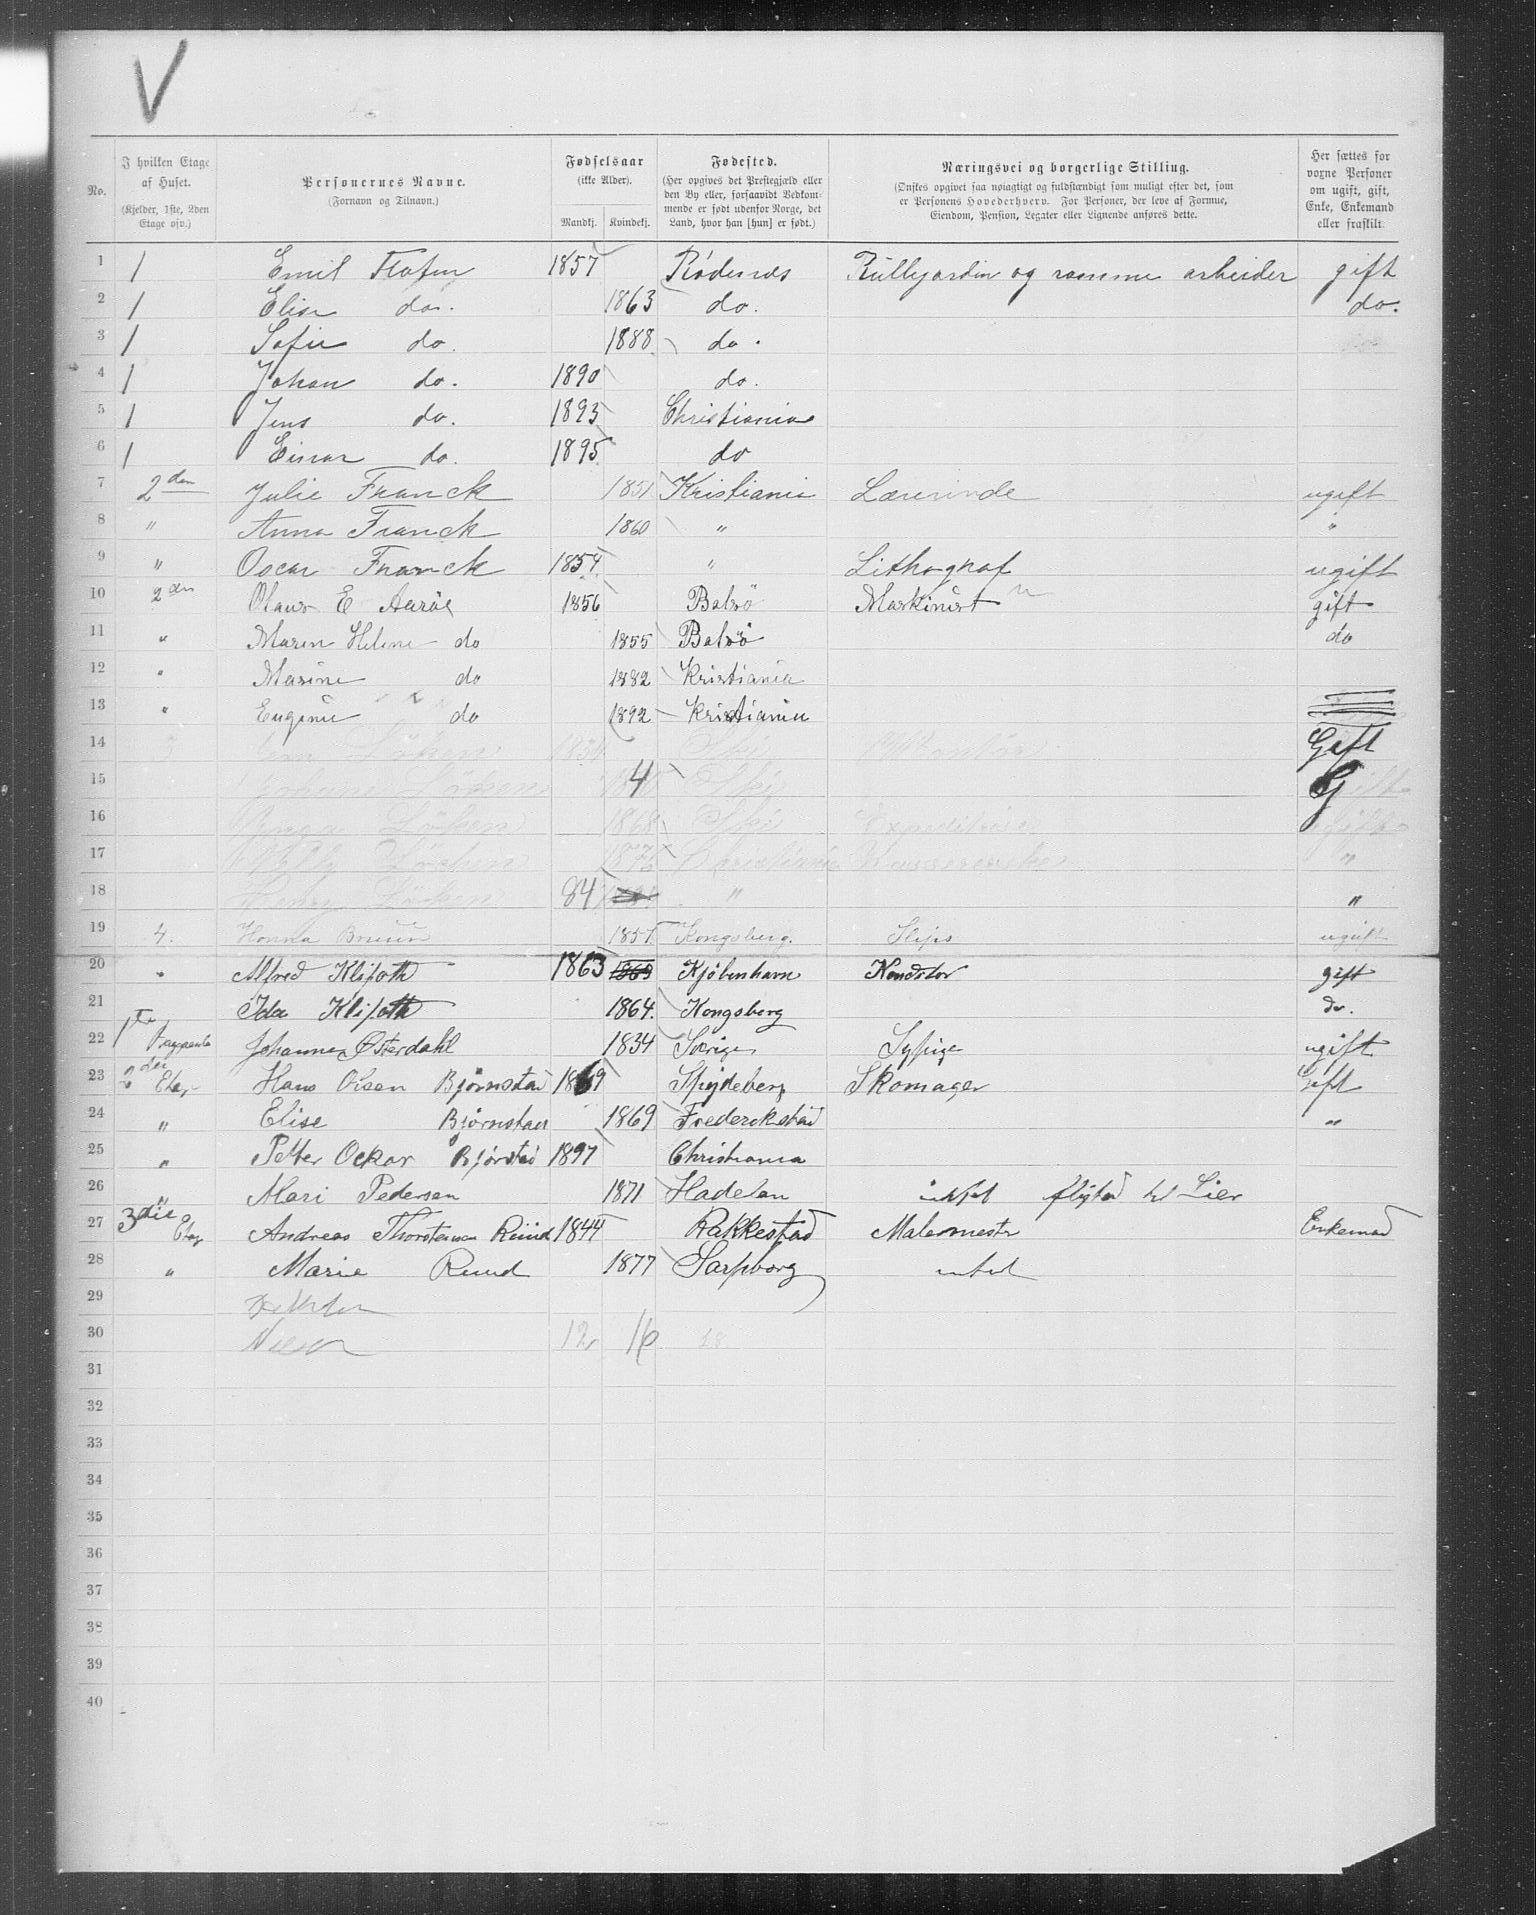 V
No. I hvilken Etage af Huset. (Kjelder, 1ste, 2den Etage osv.) Personernes Navne. (Fornavn og Tilnavn.) Fødselsaar (ikke Alder). Mandkj. Kvindekj. Fødested. (Her opgives det Prestegjæld eller den By eller, forsaavidt Vedkommende er født udenfor Norge, det Land, hvor han [hun] er født.) Næringsvei og borgerlige Stilling. (Ønskes opgivet saa nøiagtigt og fuldstændigt som muligt efter det, som er Personens Hovederhverv. For Personer, der leve af Formue, Eiendom, Pension, Legater eller Lignende anføres dette.) Her sættes for voxne Personer om ugift, gift, Enke, Enkemand eller fraskilt.
1 1 Emil 1857 Rødenæs og ramme arbeider gift
2 1 Elise do. 1863 do. do.
3 1 Sofie do. 1888 do.
4 1 Johan do. 1890 do.
5 1 Jens do. 1893 Christiania
6 1 Einar do. 1895 do
7 2den Julie Franck 1851 Kristiania Lærerinde ugift
8 " Anna Franck 1860 " "
9 " Oscar Franck 1854 " Lithograf ugift
10 2den Olaus E Aarøe 1856 Balsö Maskinist gift
11 " Maren Helene do 1855 Balsö do
12 " Marine do 1882 Kristiania
13 " Eugenie do 1892 Kristiania
14 Löken Ski Gift
15 Johane Löken 4 Ski G
16 Löken 1868 Ski
17 Löchen Christiania "
18 Henry Löcken 84 " "
19 4. Hanna Bruun 1857 Kongsberg. Slips ugift
20 " Alfred Klifoth 1863 Kjöbenhavn Konditor gift
21 Ida Klifoth 1864. Kongsberg do.
22 1ste Johanne Østerdahl 1834 Sverige Sypige ugift
23 2den Etag Hans Olsen Björnstad 1869 Spydeberg Skomager Gift
24 " Elise Björnstad 1869 Frederekstad "
25 " Petter Oskar 1897 Christiania
26 " Mari Pedersen 1871 Hadelan intet flytted til Lier
27 3die Etag Andreas Thorstensen Ruud 1844 Rakkestad Malermester Enkemand
28 " Marie Ruud 1877 Sarpborg intet
29
30 12 16 28
31
32
33
34
35
36
37
38
39
40